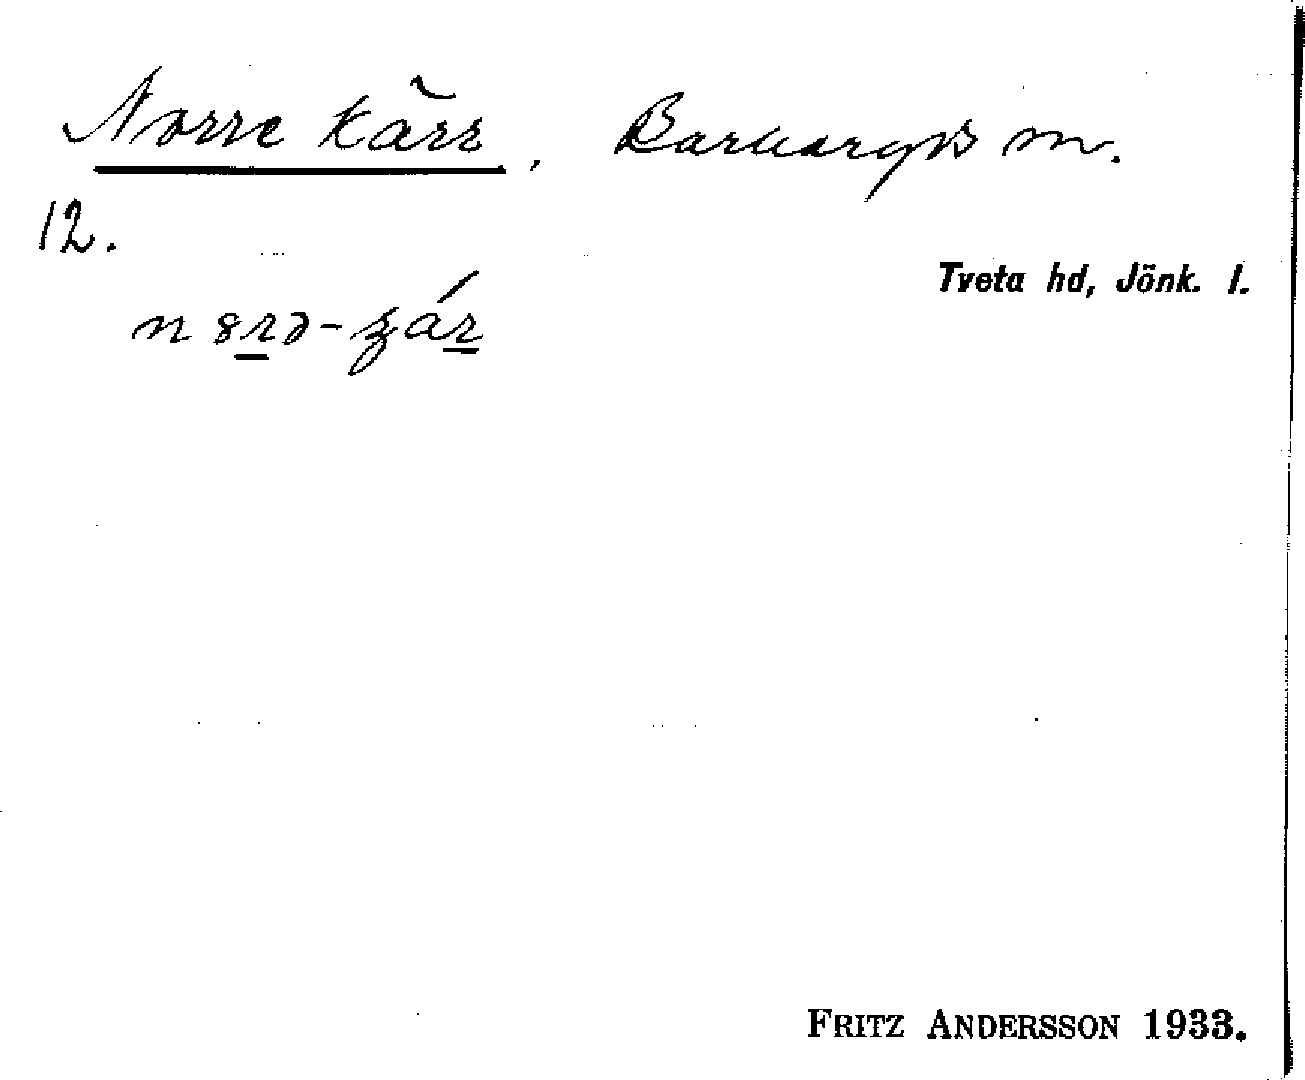 Norre Kärr, Barkaryds sn.
12.
Tveta hd, Jönk. l.
FRITZ ANDERSSON 1933.